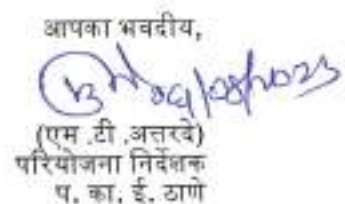 आपका भवदीय,
09/08/2023
(एम .टी .अत्तरदे)
परियोजना निर्देशक
प. का. ई. ठाणे